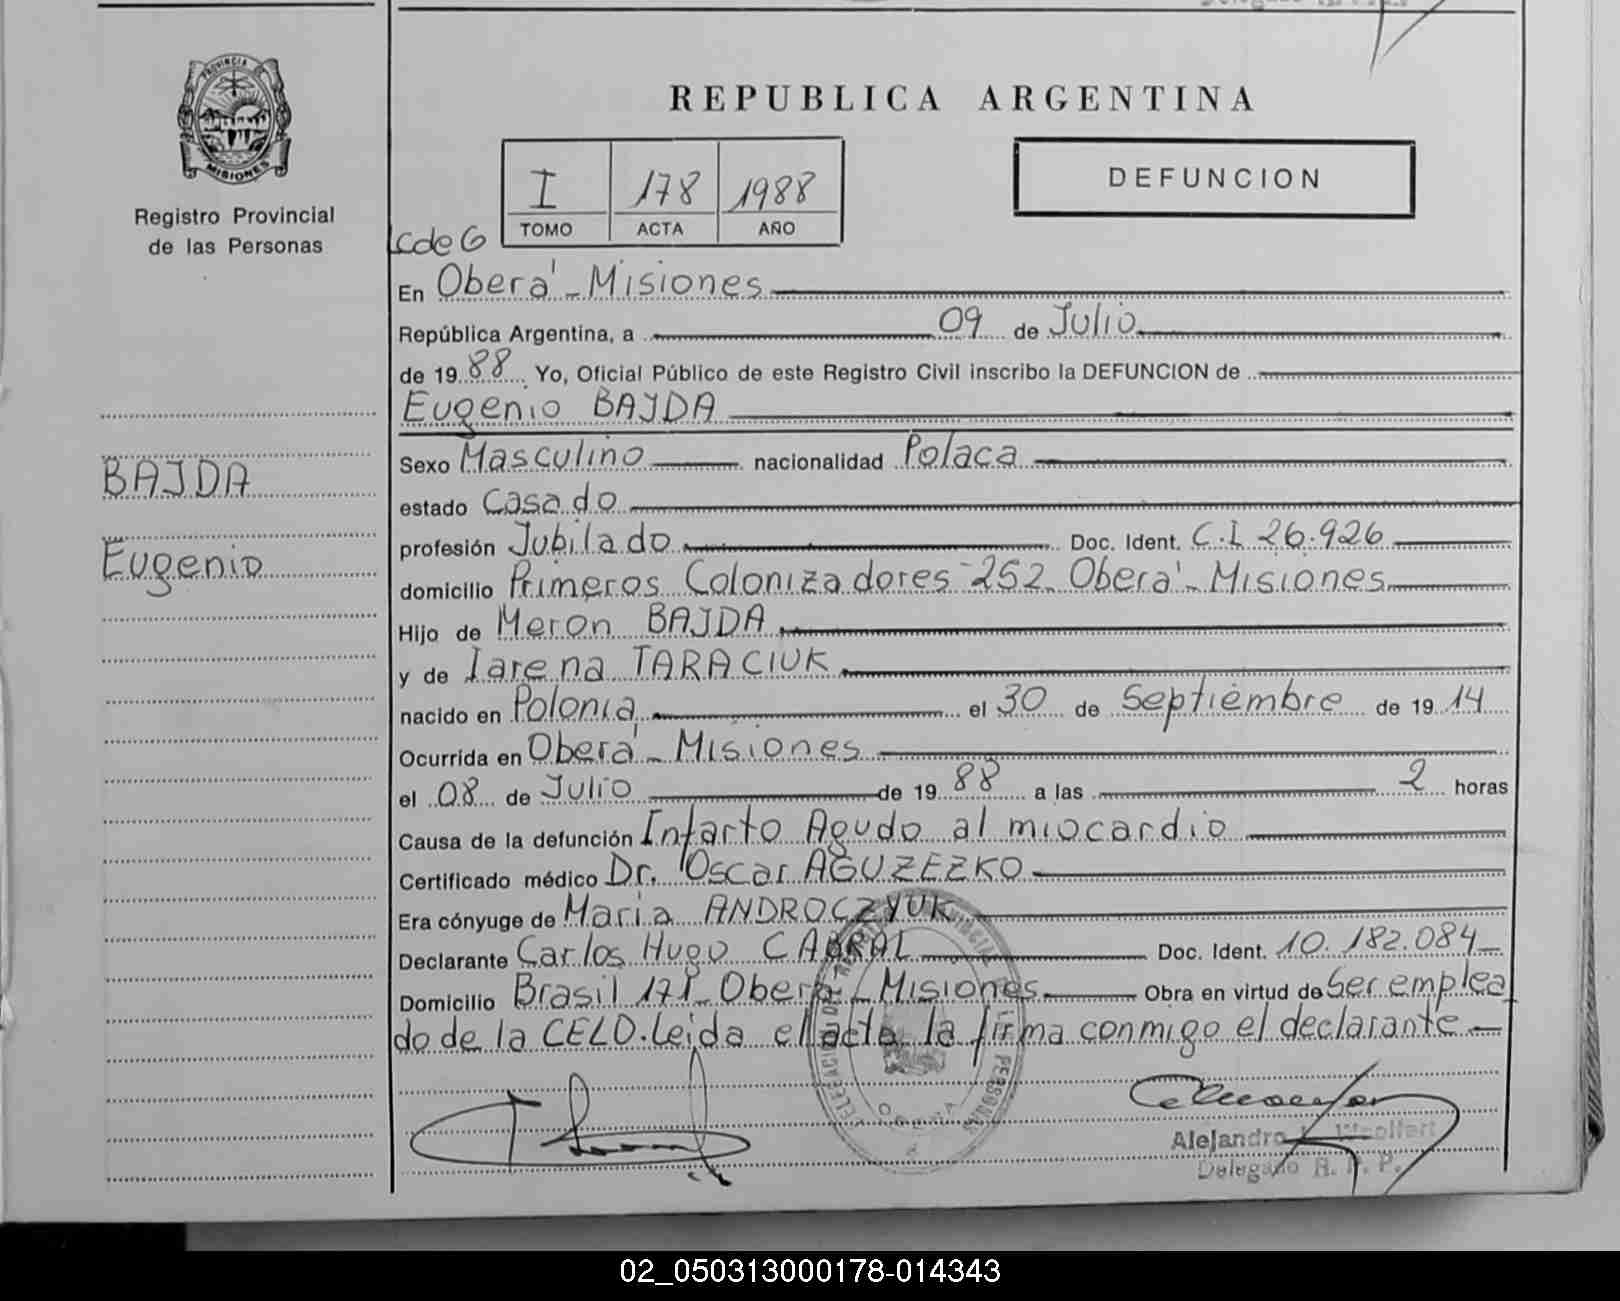 PROVINCIA DE
MISIONES
Registro Provincial
de las Personas
REPUBLICA ARGENTINA
I 178 1988
TOMO ACTA AÑO
DEFUNCION
En Oberá - Misiones
República Argentina, a 09 de Julio
de 19 88 Yo, Oficial Público de este Registro Civil inscribo la DEFUNCION de
Eugenio BAJDA
BAJDA
Eugenio
Sexo Masculino nacionalidad Polaca
estado Casado
profesión Jubilado Doc. Ident. C.I 26.926
domicilio Primeros Colonizadores - 252 - Oberá - Misiones
Hijo de Meron BAJDA
y de Iarena TARACIUK
nacido en Polonia el 30 de Septiembre de 19 14
Ocurrida en Oberá - Misiones
el 08 de Julio de 19 88 a las 2 horas
Causa de la defunción Infarto Agudo al miocardio
Certificado médico Dr. Oscar AGUZEZKO
Era cónyuge de Maria ANDROCZYUK
Declarante Carlos Hugo CABRAL Doc. Ident. 10.182.084
Domicilio Brasil 171 - Oberá - Misiones Obra en virtud de Ser emplea
do de la CELO. Leida el acta la firma conmigo el declarante
Alejandro
Delegado R. P. P.
02_050313000178-014343